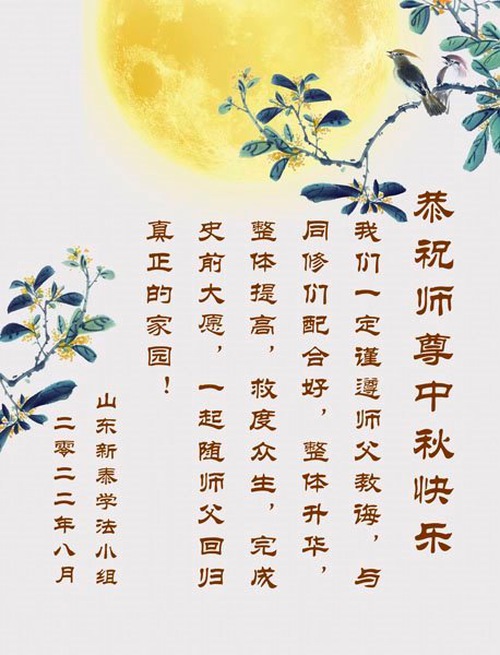 恭祝师尊中秋快乐
我们一定谨遵师父教诲，与
同修们配合好，整体升华，
整体提高，救度众生，完成
史前大愿，一起随师父回归
真正的家园！
山东新泰学法小组
二零二二年八月